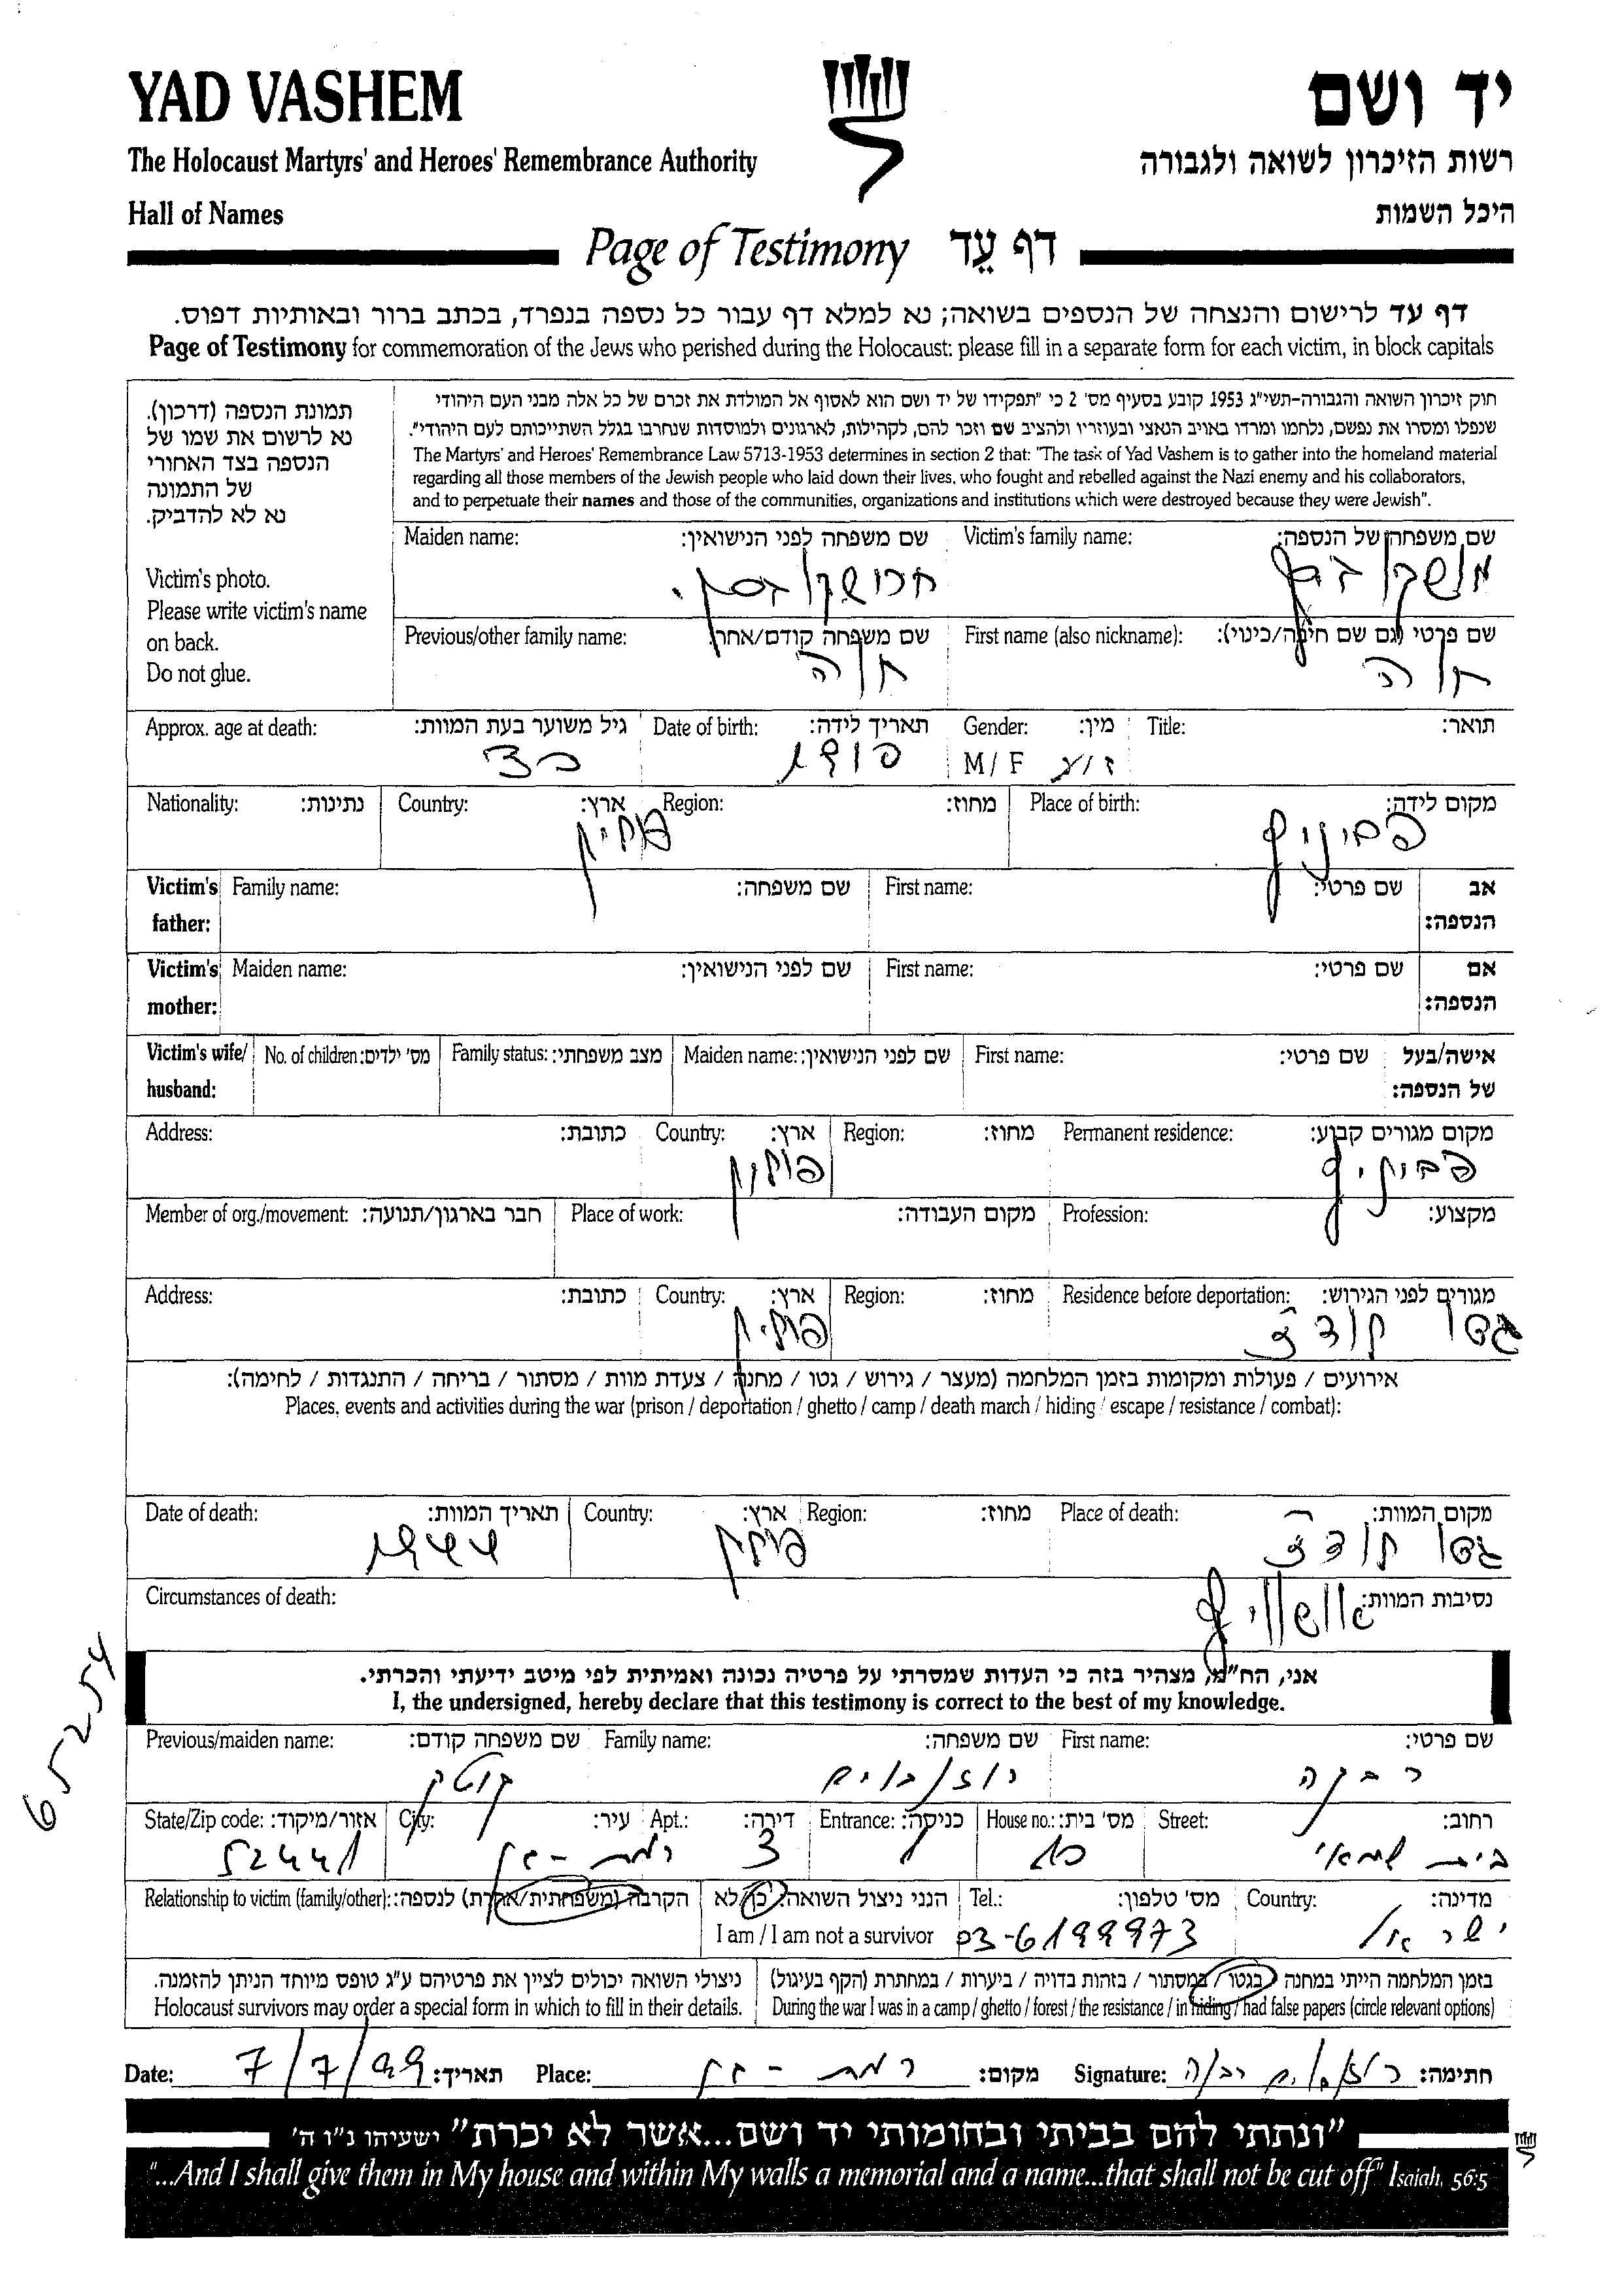 YAD VASHEM
יד ושם
The Holocaust Martyrs' and Heroes' Remembrance Authority
רשות הזיכרון לשואה ולגבורה
Hall of Names
היכל השמות
Page of Testimony דף עֵד
דף עד לרישום והנצחה של הנספים בשואה; נא למלא דף עבור כל נספה בנפרד, בכתב ברור ובאותיות דפוס.
Page of Testimony for commemoration of the Jews who perished during the Holocaust: please fill in a separate form for each victim, in block capitals
תמונת הנספה (דרכון).
נא לרשום את שמו של
הנספה בצד האחורי
של התמונה
נא לא להדביק.
Victim's photo.
Please write victim's name
on back.
Do not glue.
חוק זיכרון השואה והגבורה-תשי"ג 1953 קובע בסעיף מס' 2 כי "תפקידו של יד ושם הוא לאסוף אל המולדת את זכרם של כל אלה מבני העם היהודי
שנפלו ומסרו את נפשם, נלחמו ומרדו באויב הנאצי ובעוזריו ולהציב שם וזכר להם, לקהילות, לארגונים ולמוסדות שנחרבו בגלל השתייכותם לעם היהודי".
The Martyrs' and Heroes' Remembrance Law 5713-1953 determines in section 2 that: "The task of Yad Vashem is to gather into the homeland material
regarding all those members of the Jewish people who laid down their lives, who fought and rebelled against the Nazi enemy and his collaborators,
and to perpetuate their names and those of the communities, organizations and institutions which were destroyed because they were Jewish".
Maiden name: שם משפחה לפני הנישואין: Victim's family name: שם משפחה של הנספה:
Previous/other family name: שם משפחה קודם/אחר: First name (also nickname): שם פרטי (גם שם חיבה/כינוי):
Approx. age at death: גיל משוער בעת המוות: Date of birth: תאריך לידה: Gender: מין: Title: תואר:
M / F ז/נ
Nationality: נתינות: Country: ארץ: Region: מחוז: Place of birth: מקום לידה:
פולין
Victim's father: Family name: שם משפחה: First name: שם פרטי: אב הנספה:
Victim's mother: Maiden name: שם לפני הנישואין: First name: שם פרטי: אם הנספה:
Victim's wife/ husband: No. of children: מס' ילדים: Family status: מצב משפחתי: Maiden name: שם לפני הנישואין: First name: שם פרטי: אישה/בעל של הנספה:
Address: כתובת: Country: ארץ: Region: מחוז: Permanent residence: מקום מגורים קבוע:
פולין
Member of org./movement: חבר בארגון/תנועה: Place of work: מקום העבודה: Profession: מקצוע:
Address: כתובת: Country: ארץ: Region: מחוז: Residence before deportation: מגורים לפני הגירוש:
גטו לודז'
פולין
אירועים / פעולות ומקומות בזמן המלחמה (מעצר / גירוש / גטו / מחנה / צעדת מוות / מסתור / בריחה / התנגדות / לחימה):
Places, events and activities during the war (prison / deportation / ghetto / camp / death march / hiding / escape / resistance / combat):
Date of death: תאריך המוות: Country: ארץ: Region: מחוז: Place of death: מקום המוות:
גטו לודז'
פולין
1944
Circumstances of death: נסיבות המוות:
אני, הח"מ, מצהיר בזה כי העדות שמסרתי על פרטיה נכונה ואמיתית לפי מיטב ידיעתי והכרתי.
I, the undersigned, hereby declare that this testimony is correct to the best of my knowledge.
65254
Previous/maiden name: שם משפחה קודם: Family name: שם משפחה: First name: שם פרטי:
רבקה
רוזנבוים
State/Zip code: אזור/מיקוד: City: עיר: Apt.: דירה: Entrance: כניסה: House no.: מס' בית: Street: רחוב:
בית שמאי
10
3
רמת-גן
52441
Relationship to victim (family/other): הקרבה (משפחתית/אחרת) לנספה: הנני ניצול השואה: כן/לא Tel.: מס' טלפון: Country: מדינה:
I am / I am not a survivor
ישראל
03-6199973
בזמן המלחמה הייתי במחנה / בגטו / במסתור / בזהות בדויה / ביערות / במחתרת (הקף בעיגול)
During the war I was in a camp / ghetto / forest / the resistance / in hiding / had false papers (circle relevant options)
ניצולי השואה יכולים לציין את פרטיהם ע"ג טופס מיוחד הניתן להזמנה.
Holocaust survivors may order a special form in which to fill in their details.
Date: 7/7/99 תאריך: Place: רמת-גן מקום: Signature: רוזנבוים רבקה חתימה:
"ונתתי להם בביתי ובחומותי יד ושם...אשר לא יכרת" ישעיהו נ"ו ה'
"...And I shall give them in My house and within My walls a memorial and a name...that shall not be cut off" Isaiah, 56:5